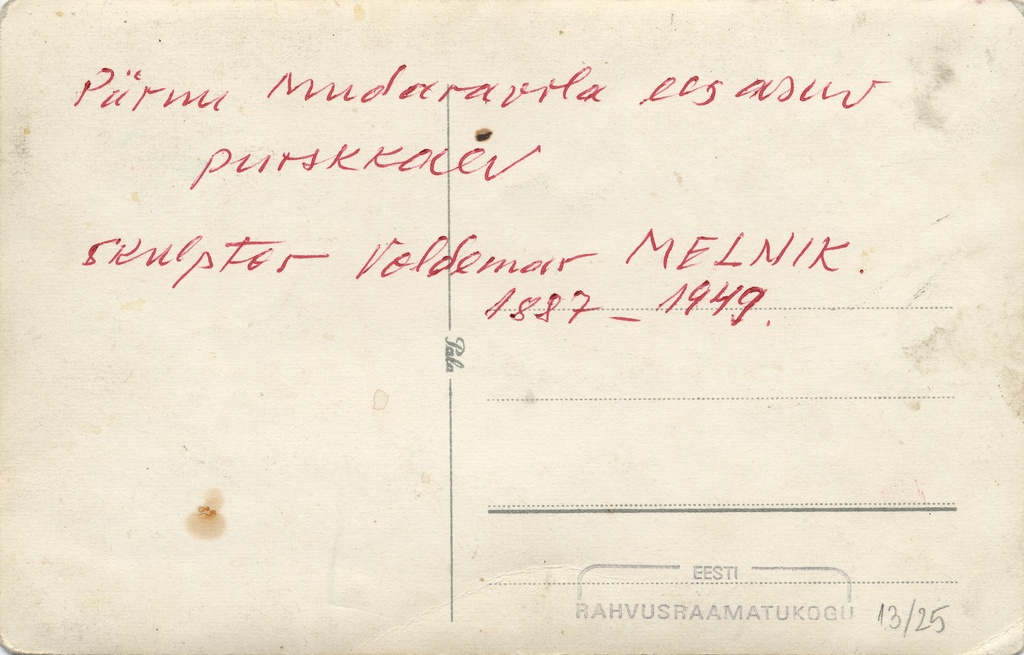 Pärnu Mudaravila ees asuv
purskkaev
skulptor Voldemar MELNIK.
1887 – 1949.
Pala
EESTI
RAHVUSRAAMATUKOGU 13/25